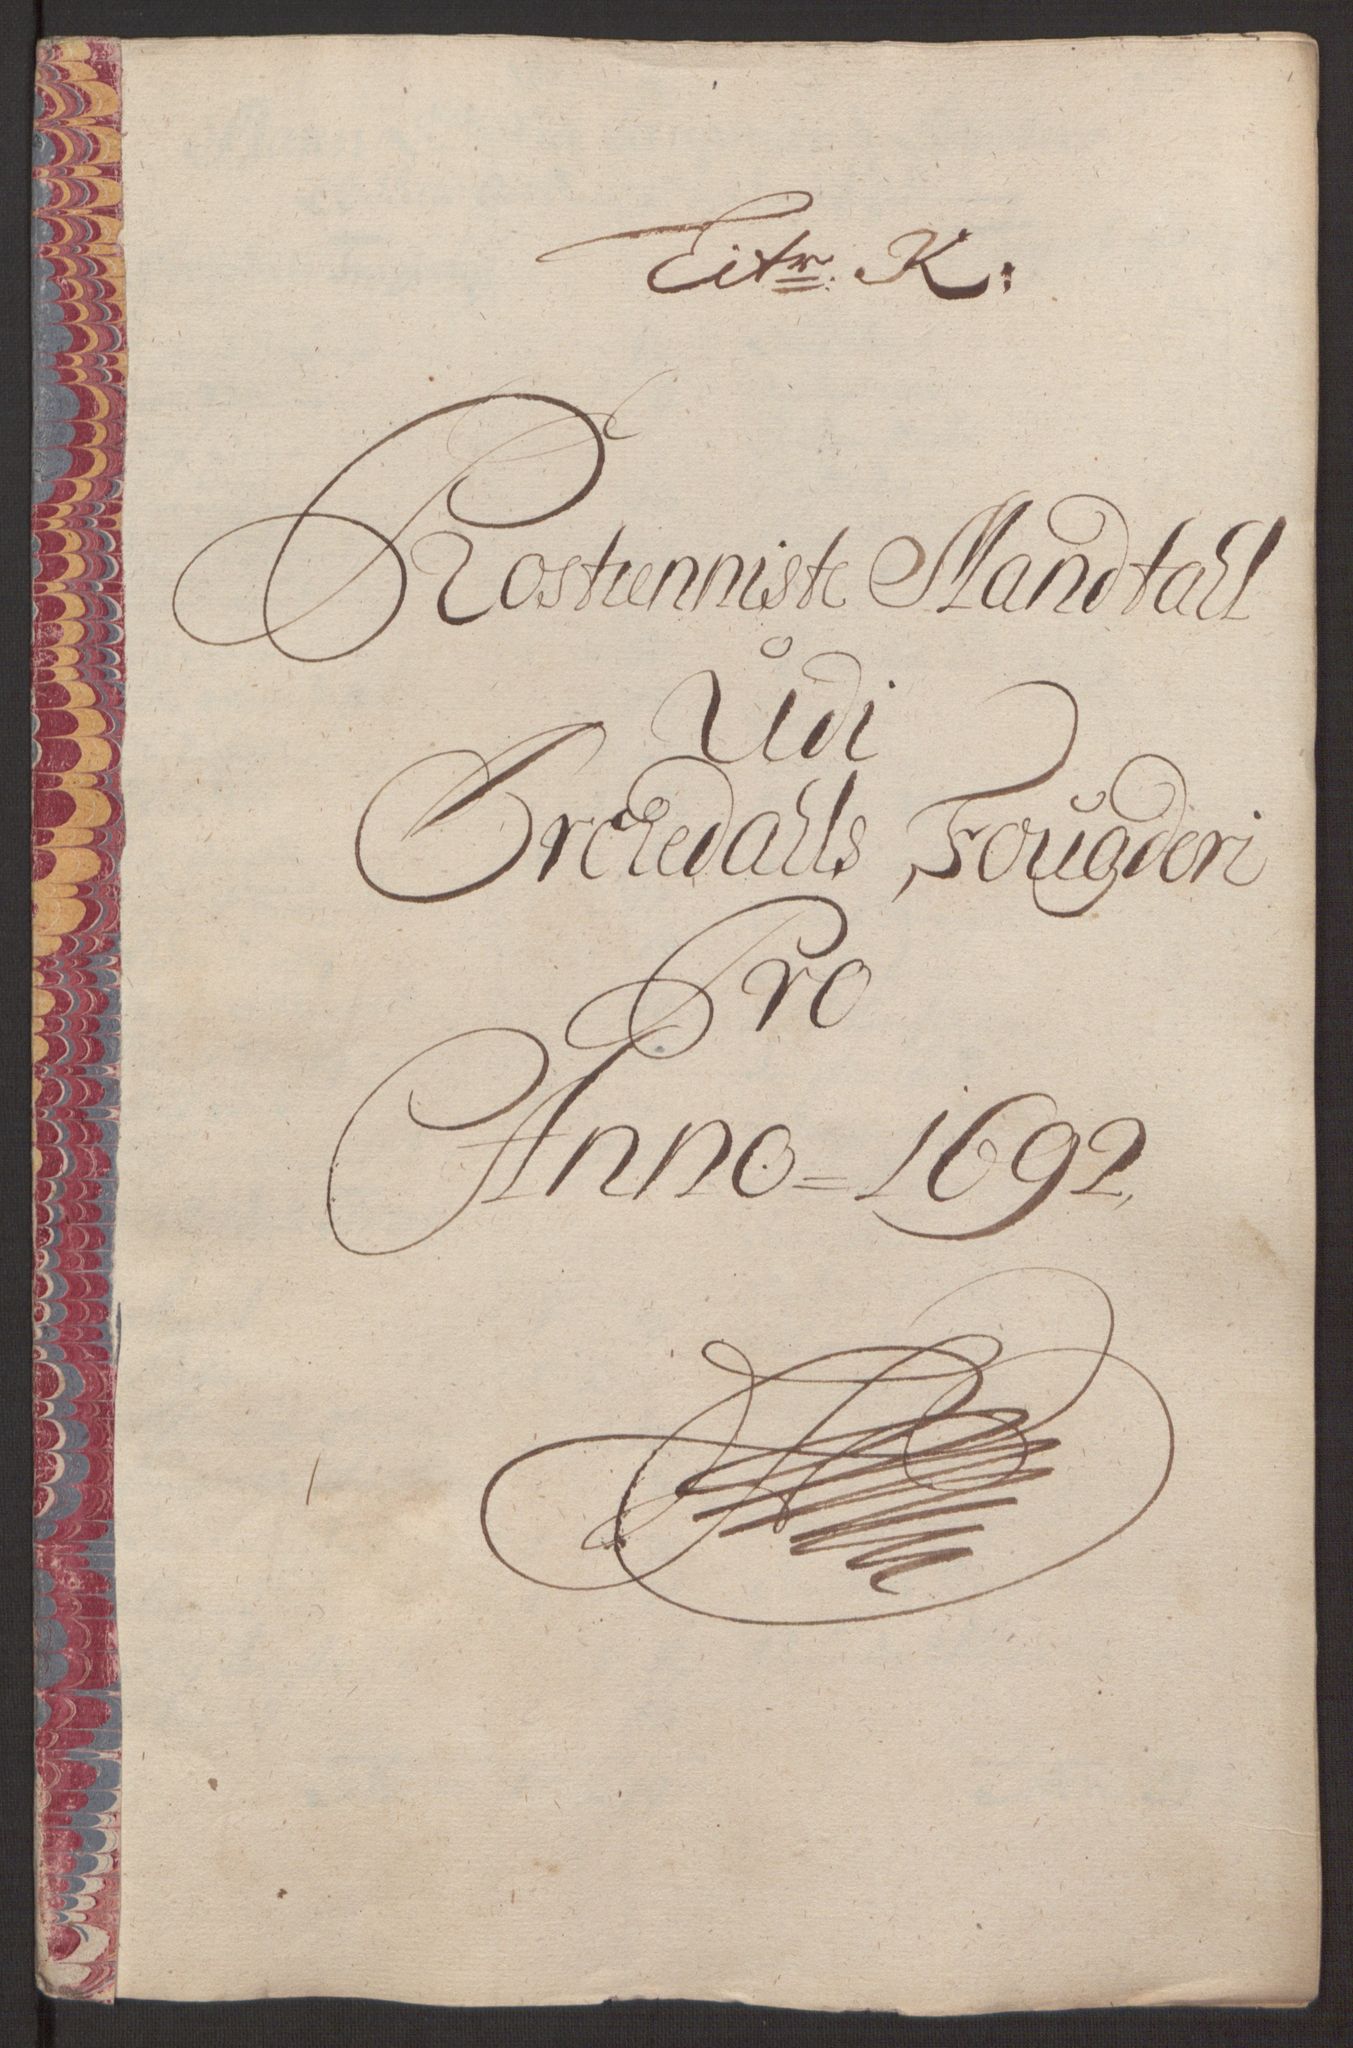 Litr. K:
Rostienniste Mandtall
Udi
Orckedalls Fougderi
Pro
Anno = 1692,